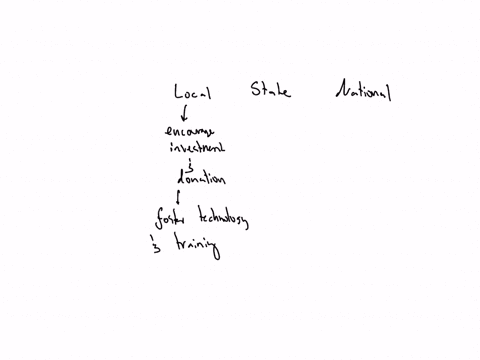 Local State National
encourage
investment
&
donation
foster technology
& training